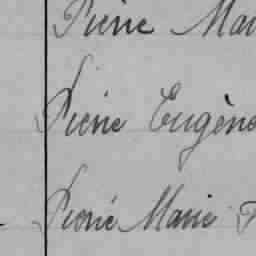 Pierre Mar
Pierre Eugène
Pierre Marie